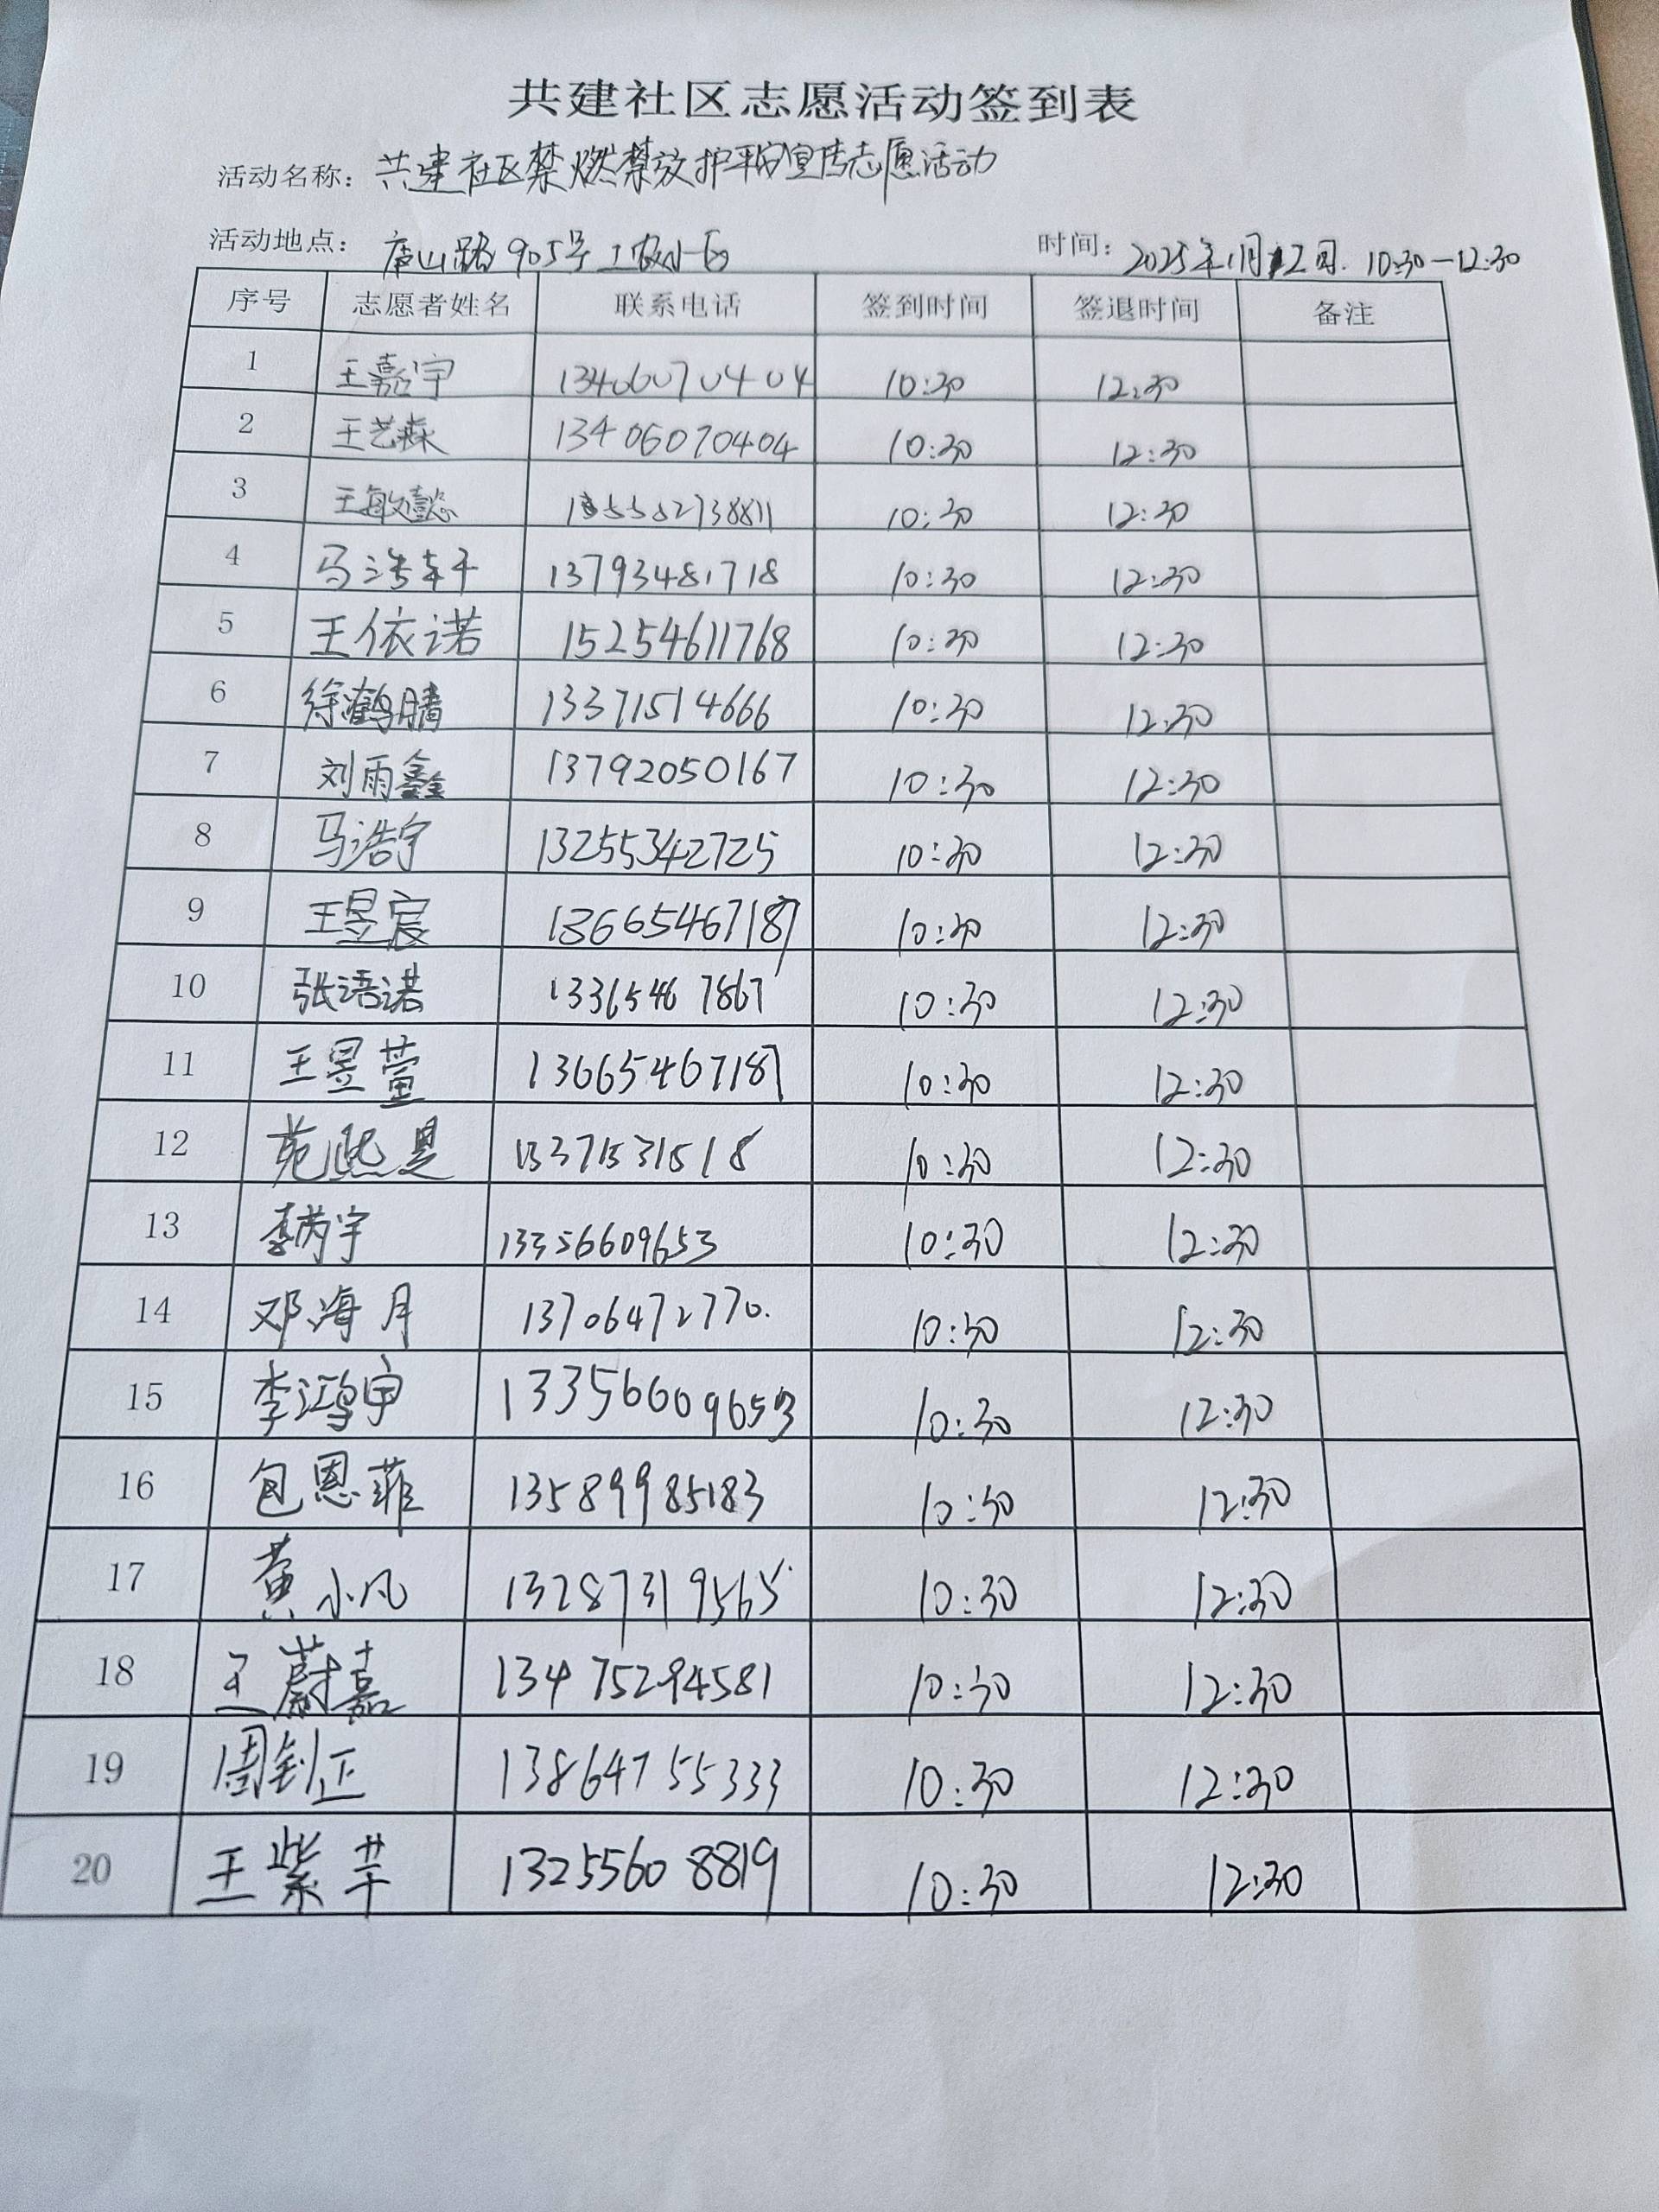 共建社区志愿活动签到表
活动名称：共建社区禁燃禁放护平安宣传志愿活动
活动地点：唐山路905号工农小区 时间：2025年1月12日. 10:30-12:30
序号 志愿者姓名 联系电话 签到时间 签退时间 备注
1 王嘉宇 13406070404 10:30 12:30
2 王艺森 13406070404 10:30 12:30
3 王敏懿 10:30 12:30
4 马浩轩 13793481718 10:30 12:30
5 王依诺 15254611768 10:30 12:30
6 徐鹤晴 13371514666 10:30 12:30
7 刘雨鑫 13792050167 10:30 12:30
8 马浩宇 13255342725 10:30 12:30
9 王昱宸 13665467187 10:30 12:30
10 张语诺 13365467867 10:30 12:30
11 王昱萱 13665467187 10:30 12:30
12 苑熙是 13371531518 10:30 12:30
13 李芮宇 13356609653 10:30 12:30
14 邓海月 13706472770. 10:30 12:30
15 李鸿宇 13356609653 10:30 12:30
16 包恩菲 13589985183 10:30 12:30
17 黄小凡 13287319565 10:30 12:30
18 王蔚嘉 13475294581 10:30 12:30
19 周钊正 13864755333 10:30 12:30
20 王紫芊 13255608819 10:30 12:30